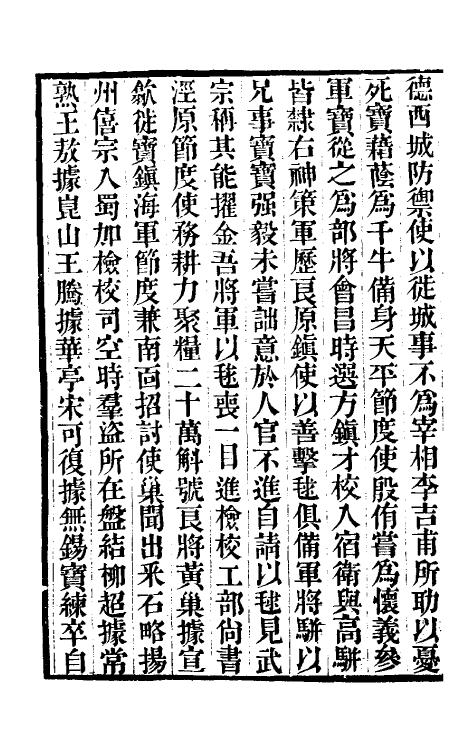 德西城防禦使以徙城事不爲宰相李吉甫所助以憂
死寶藉蔭爲千牛備身天平節度使殷侑嘗爲懷義參
軍寶從之爲部將會昌時選方鎮才校入宿衛與高駢
皆隸右神策軍歷良原鎮使以善擊毬俱備軍將駢以
兄事寶寶强毅未嘗詘意於人官不進自請以毬見武
宗稱其能擢金吾將軍以毬喪一目進檢校工部尙書
涇原節度使務耕力聚糧二十萬斛號良將黃巢據宣
歙徙寶鎮海軍節度兼南面招討使巢聞出采石略揚
州僖宗入蜀加檢校司空時羣盜所在盤結柳超據常
熟王敖據崑山王騰據華亭宋可復據無錫寶練卒自